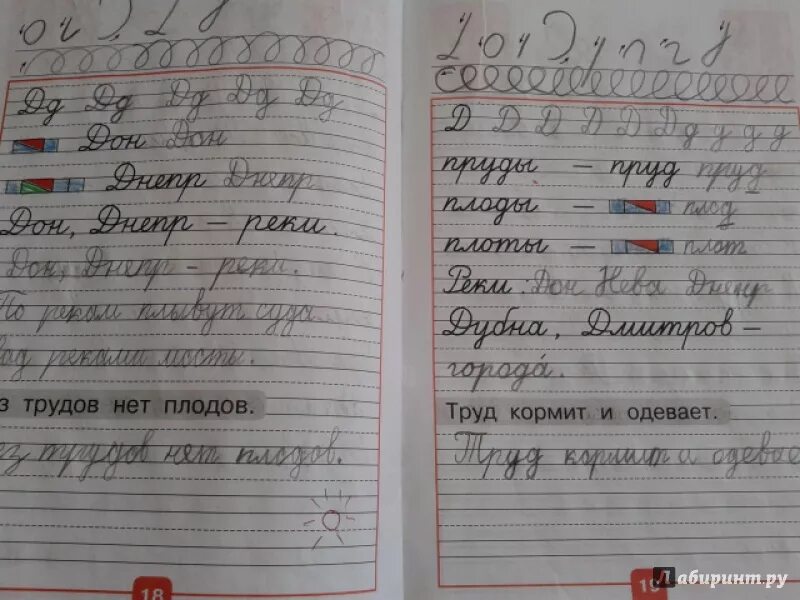 Дд Дд Дд Дд Дд
Дон Дон
Днепр Днепр
Дон, Днепр – реки.
Дон, Днепр – реки.
По рекам плывут суда.
ад реками мосты.
з трудов нет плодов.
ез трудов нет плодов.
18
Д Д Д Д Д Д д д д д
пруды – пруд пруд
плоды – плод
плоты – плот
Реки: Дон Нева Днепр
Дубна, Дмитров –
города.
Труд кормит и одевает.
Труд кормит и одевае
19
Лабиринт.ру